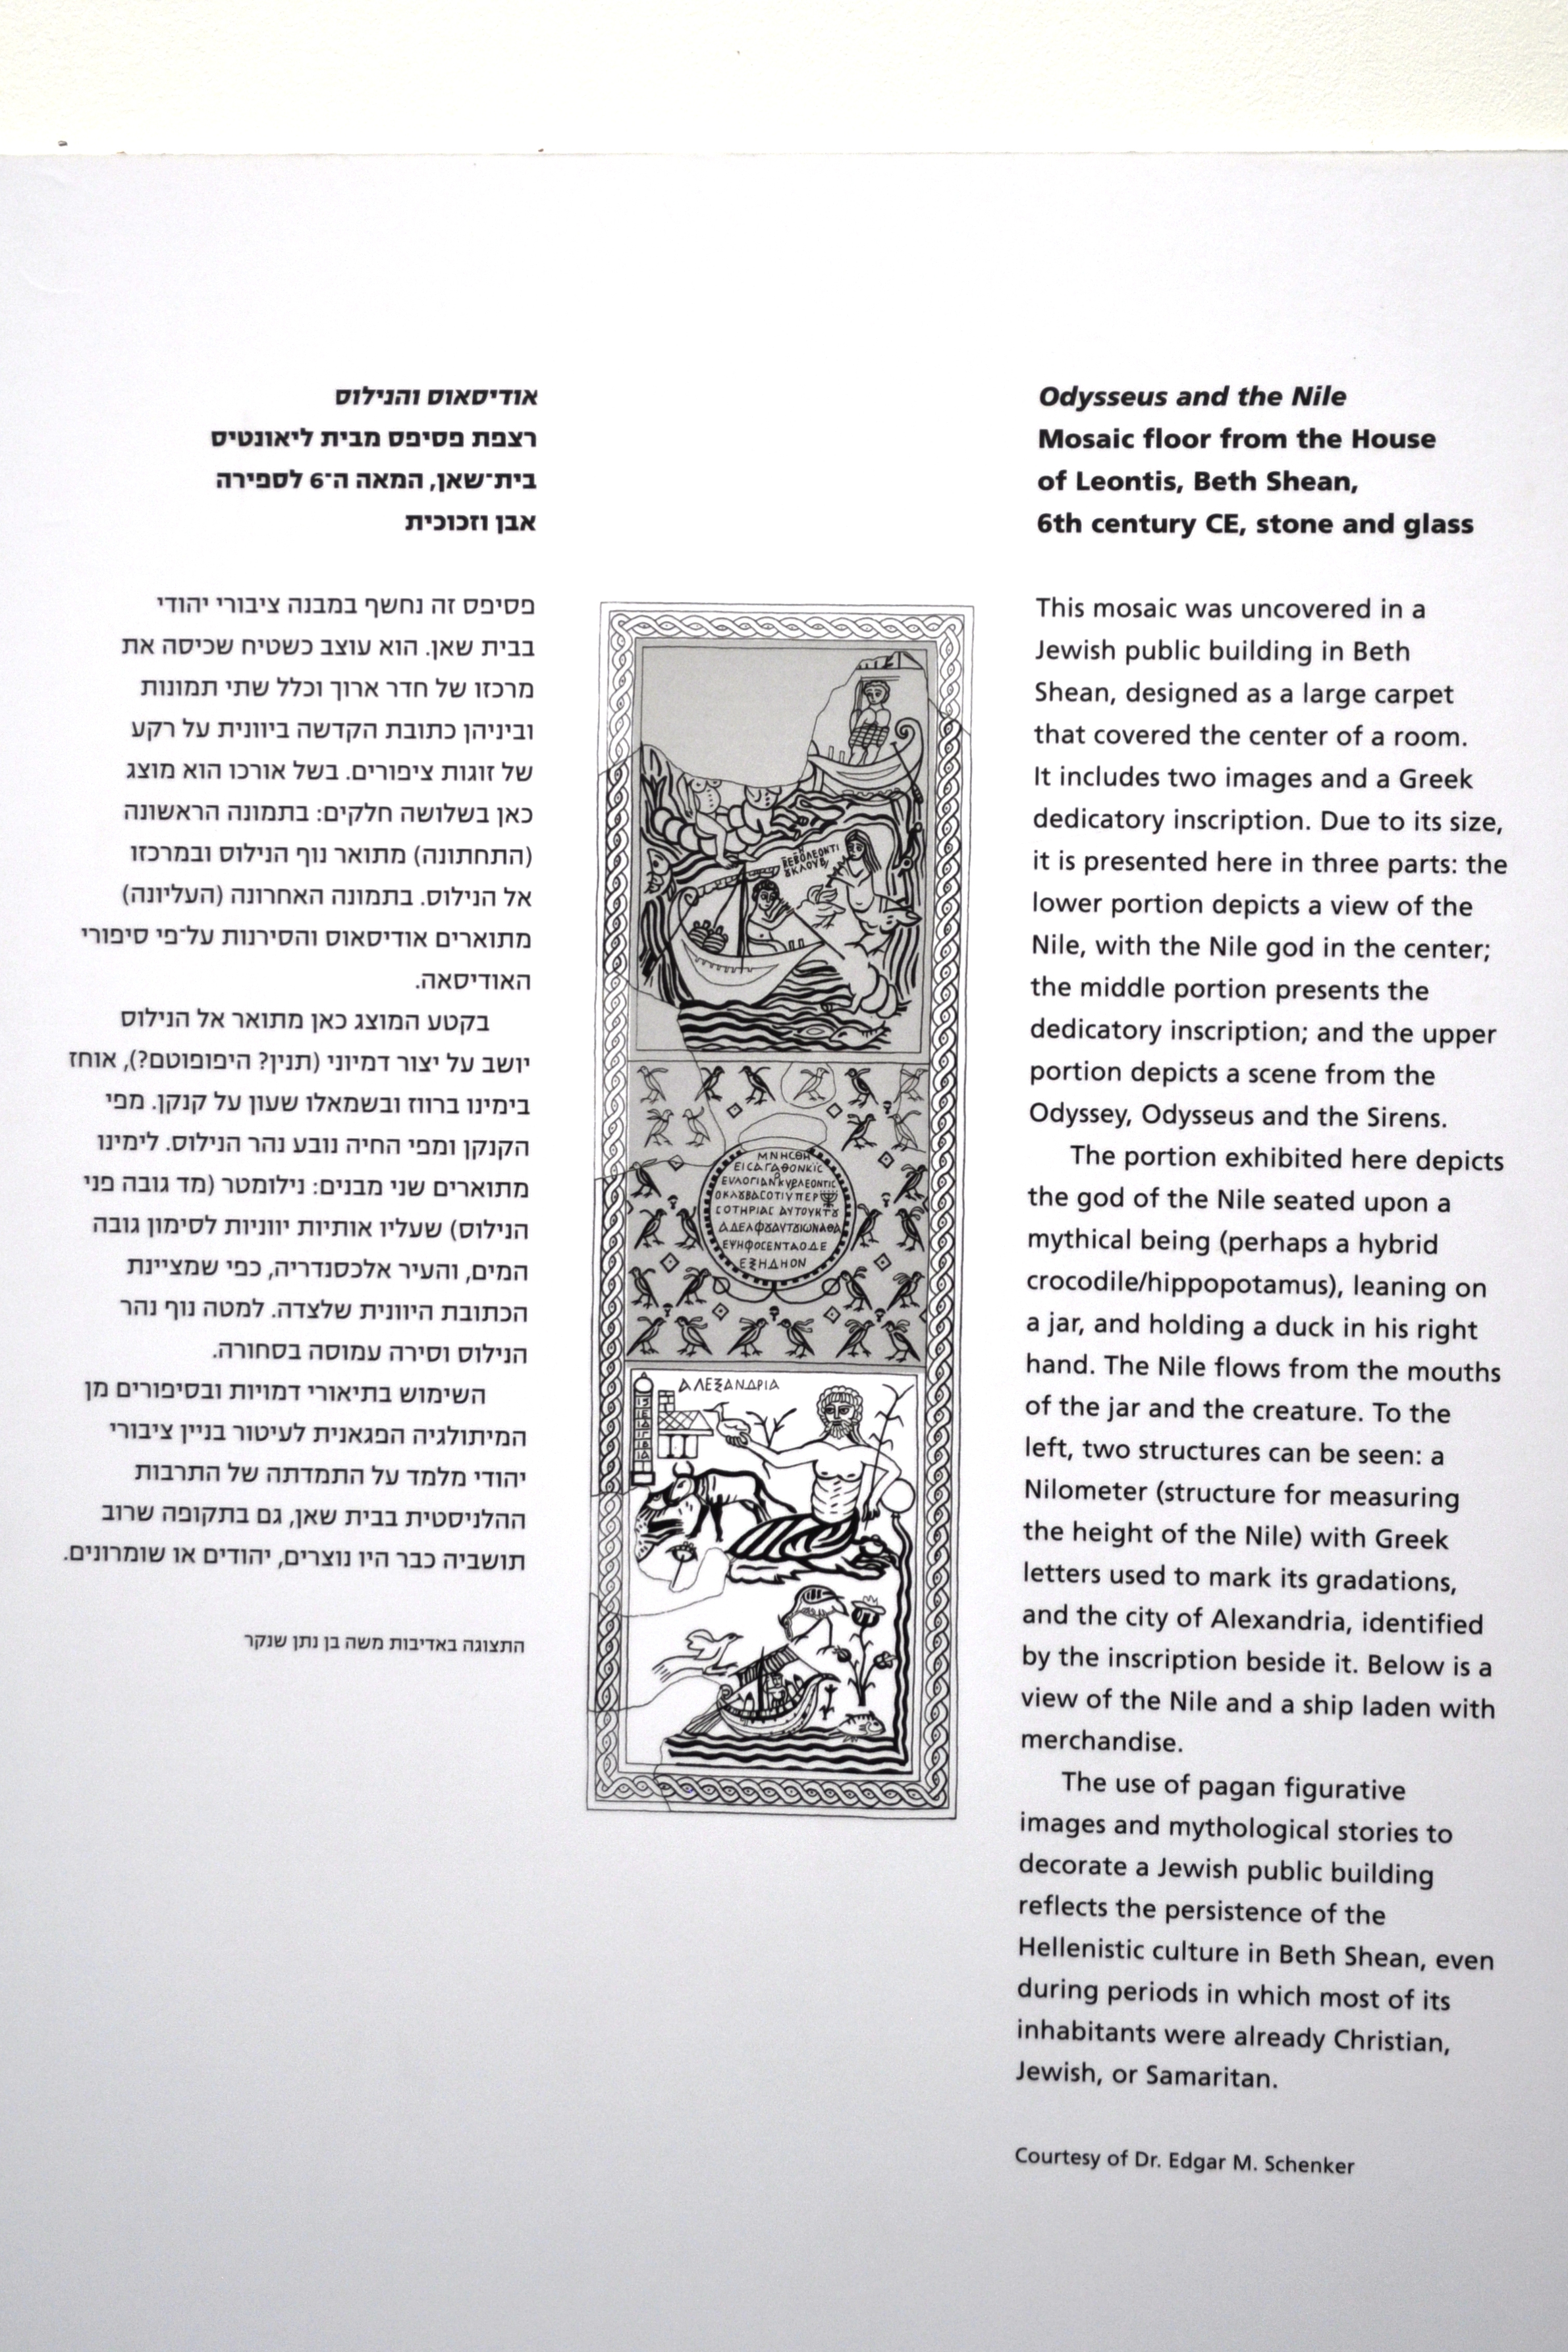 אודיסאוס והנילוס
רצפת פסיפס מבית ליאונטיס
בית־שאן, המאה ה־6 לספירה
אבן וזכוכית
פסיפס זה נחשף במבנה ציבורי יהודי
בבית שאן. הוא עוצב כשטיח שכיסה את
מרכזו של חדר ארוך וכלל שתי תמונות
וביניהן כתובת הקדשה ביוונית על רקע
של זוגות ציפורים. בשל אורכו הוא מוצג
כאן בשלושה חלקים: בתמונה הראשונה
(התחתונה) מתואר נוף הנילוס ובמרכזו
אל הנילוס. בתמונה האחרונה (העליונה)
מתוארים אודיסאוס והסירנות על־פי סיפורי
האודיסאה.
בקטע המוצג כאן מתואר אל הנילוס
יושב על יצור דמיוני (תנין? היפופוטם?), אוחז
בימינו ברווז ובשמאלו שעון על קנקן. מפי
הקנקן ומפי החיה נובע נהר הנילוס. לימינו
מתוארים שני מבנים: נילומטר (מד גובה פני
הנילוס) שעליו אותיות יווניות לסימון גובה
המים, והעיר אלכסנדריה, כפי שמציינת
הכתובת היוונית שלצדה. למטה נוף נהר
הנילוס וסירה עמוסה בסחורה.
השימוש בתיאורי דמויות ובסיפורים מן
המיתולגיה הפגאנית לעיטור בניין ציבורי
יהודי מלמד על התמדתה של התרבות
ההלניסטית בבית שאן, גם בתקופה שרוב
תושביה כבר היו נוצרים, יהודים או שומרונים.
התצוגה באדיבות משה בן נתן שנקר
ΜΝΗCΘΗ
ΕΞΗΔΗΟΝ
ΑΛΕΞΑΝΔΡΙΑ
Odysseus and the Nile
Mosaic floor from the House
of Leontis, Beth Shean,
6th century CE, stone and glass
This mosaic was uncovered in a
Jewish public building in Beth
Shean, designed as a large carpet
that covered the center of a room.
It includes two images and a Greek
dedicatory inscription. Due to its size,
it is presented here in three parts: the
lower portion depicts a view of the
Nile, with the Nile god in the center;
the middle portion presents the
dedicatory inscription; and the upper
portion depicts a scene from the
Odyssey, Odysseus and the Sirens.
The portion exhibited here depicts
the god of the Nile seated upon a
mythical being (perhaps a hybrid
crocodile/hippopotamus), leaning on
a jar, and holding a duck in his right
hand. The Nile flows from the mouths
of the jar and the creature. To the
left, two structures can be seen: a
Nilometer (structure for measuring
the height of the Nile) with Greek
letters used to mark its gradations,
and the city of Alexandria, identified
by the inscription beside it. Below is a
view of the Nile and a ship laden with
merchandise.
The use of pagan figurative
images and mythological stories to
decorate a Jewish public building
reflects the persistence of the
Hellenistic culture in Beth Shean, even
during periods in which most of its
inhabitants were already Christian,
Jewish, or Samaritan.
Courtesy of Dr. Edgar M. Schenker